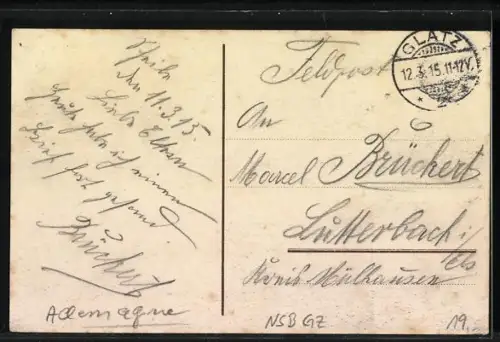 den 11.3.15.
Liebe Eltern
Heute habe ich einen
Brief
Brückert
Allemagne
GLATZ
12.3.15.11-12V.
*
Feldpost
An
Marcel Brückert
Lutterbach i/
Els
Kreis Mülhausen
NSB GZ
19.-